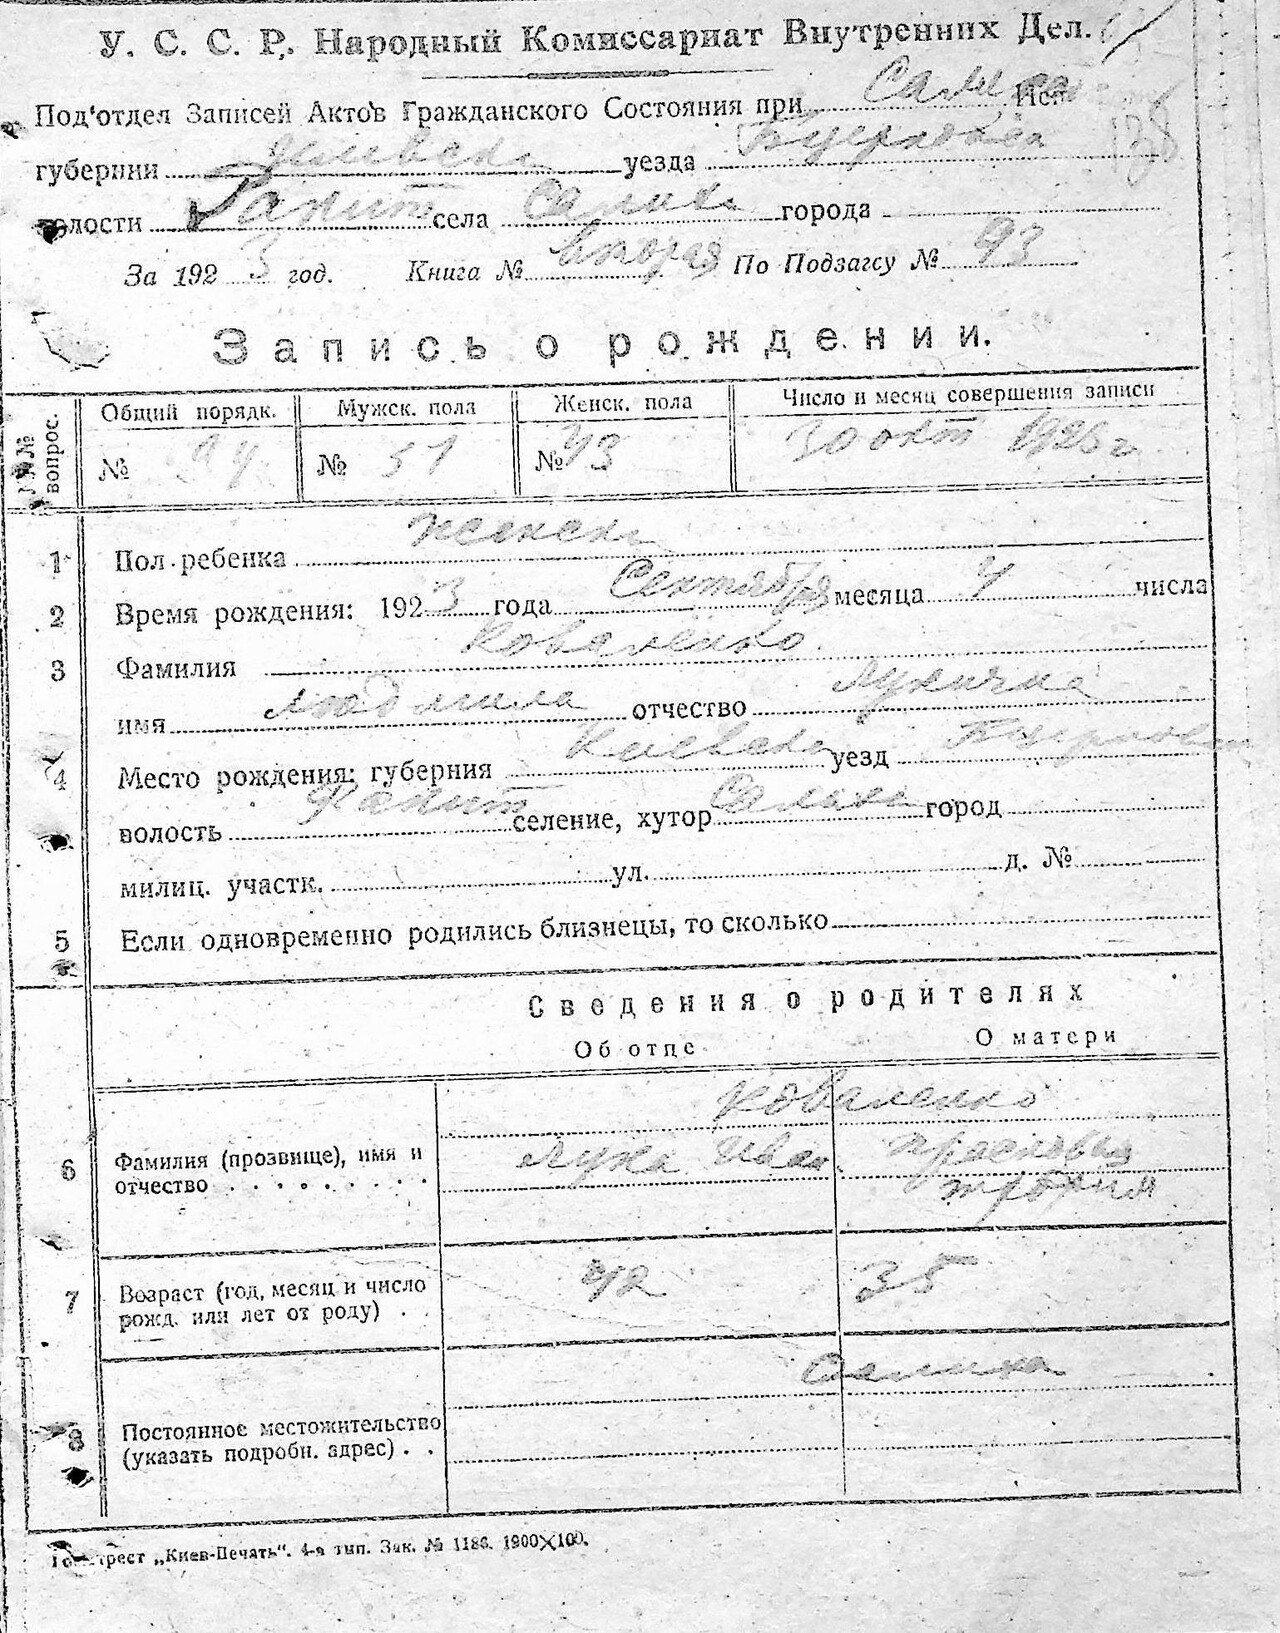 У. С. С. Р. Народный Комиссариат Внутренних Дел.
Под'отдел Записей Актов Гражданского Состояния при
губернии Киевск уезда
волости Ракит села города
За 1923 год. Книга № вторая По Подзагсу № 93
Запись о рождении.
№№ вопрос. Общий порядк. Мужск. пола Женск. пола Число и месяц совершения записи
№ 94 № 51 № 43 30 окт 1923 г
1 Пол ребенка женск
2 Время рождения: 1923 года Сентября месяца 4 числа
3 Фамилия Коваленко
имя Людмила отчество Лукична
4 Место рождения: губерния Киевск уезд
волость Ракит селение, хутор город
милиц. участк. ул. д. №
5 Если одновременно родились близнецы, то сколько
Сведения о родителях
Об отце О матери
Коваленко
6 Фамилия (прозвище), имя и отчество Лука Иван Прасковья
7 Возраст (год, месяц и число рожд. или лет от роду) 42 35
8 Постоянное местожительство (указать подробн. адрес)
„Киев-Печать“. 4-я тип. Зак. № 1186. 1900×100.